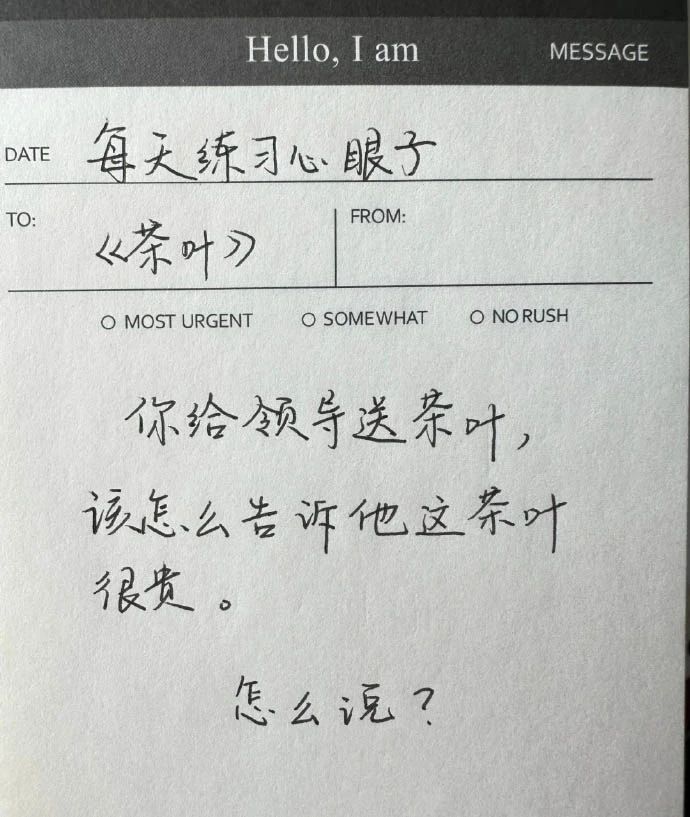 Hello, I am MESSAGE
DATE 每天练习心眼子
TO: 《茶叶》 FROM:
MOST URGENT SOMEWHAT NO RUSH
你给领导送茶叶,
该怎么告诉他这茶叶
很贵。
怎么说?